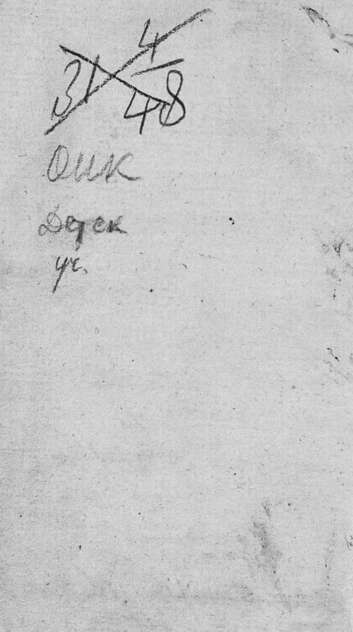 31 4/48
Оик
Детск
уч.